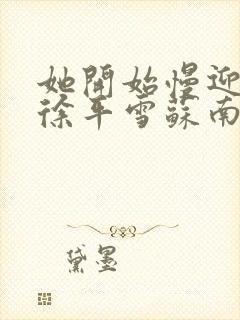 她開始慢迎
徐平雪蘇南
黛墨